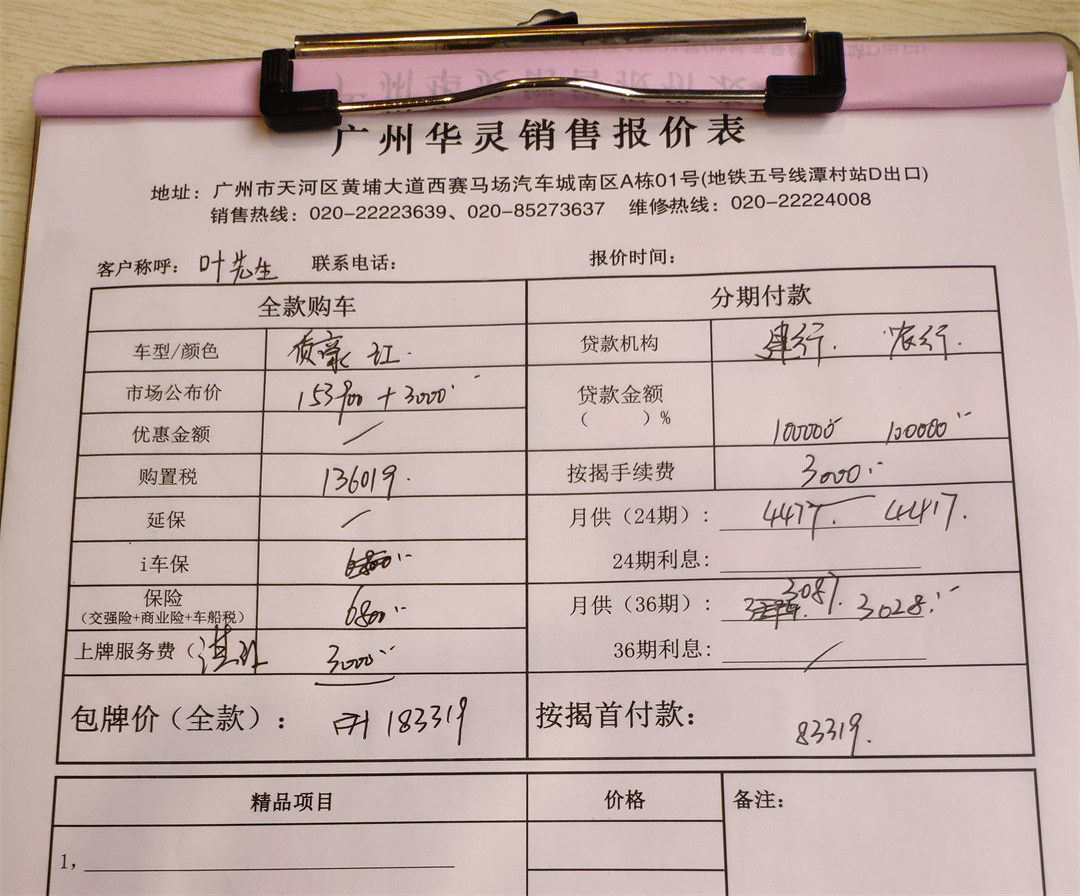 广州华灵销售报价表
地址：广州市天河区黄埔大道西赛马场汽车城南区A栋01号(地铁五号线潭村站D出口)
销售热线：020-22223639、020-85273637 维修热线：020-22224008
客户称呼：叶先生 联系电话： 报价时间：
全款购车 分期付款
车型/颜色 质豪 红. 贷款机构 建行. 农行.
市场公布价 153900 + 3000 贷款金额
（ ）% 100000 100000
优惠金额 /
购置税 136019. 按揭手续费 3000
延保 / 月供（24期）: 4477. 4417.
i车保 24期利息:
保险
(交强险+商业险+车船税) 6800 月供（36期）: 3087. 3028.
上牌服务费（ 3000 36期利息: /
包牌价（全款）： 183319 按揭首付款： 83319.
精品项目 价格 备注：
1,